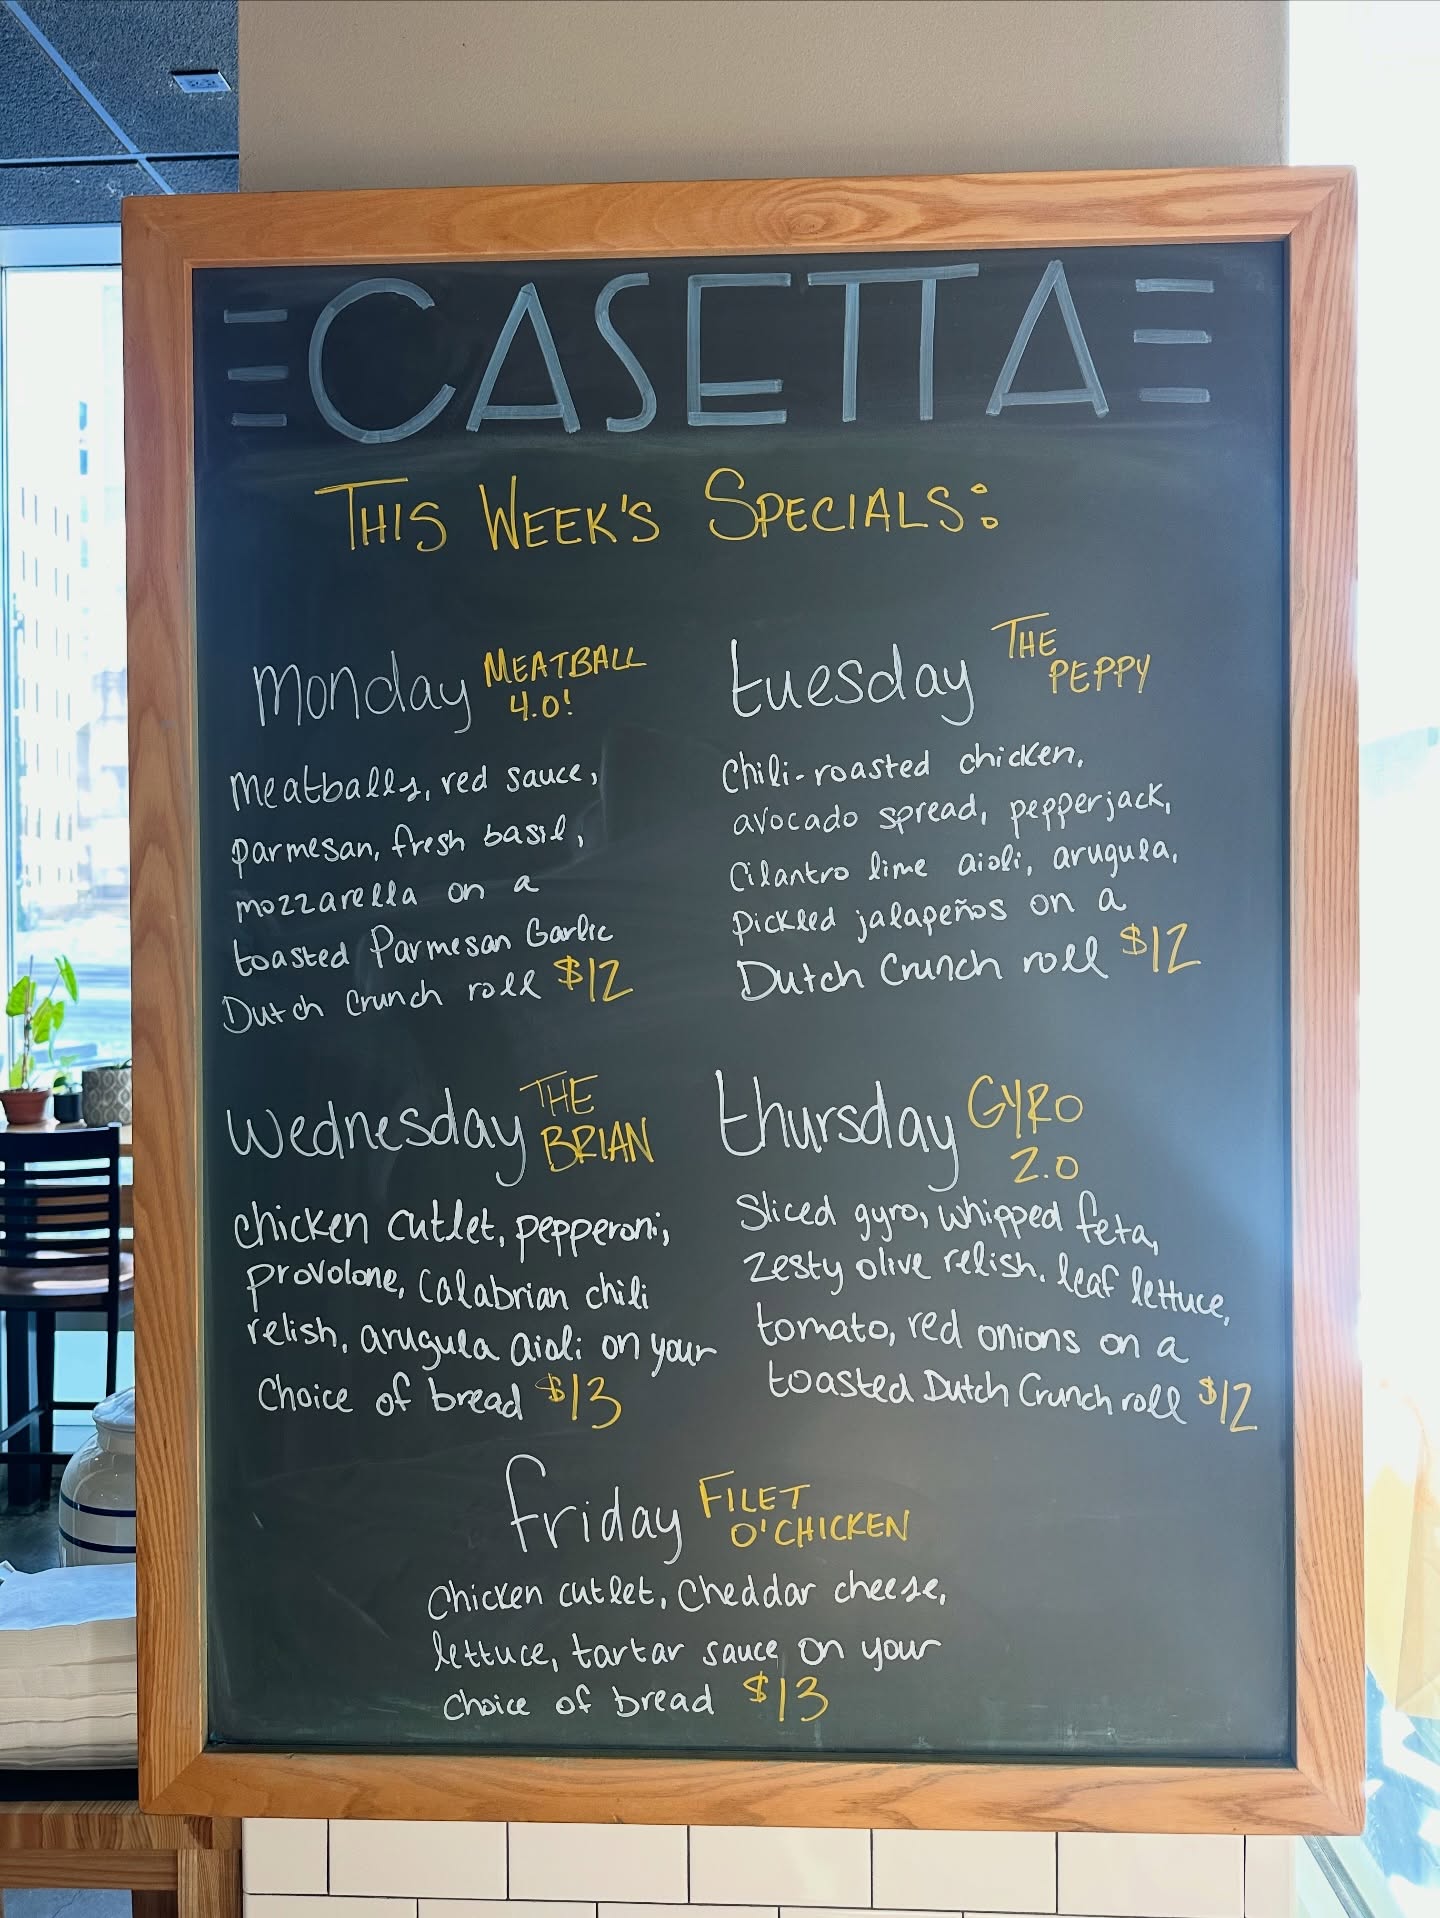 CASETTA
THIS WEEK'S SPECIALS:
monday MEATBALL
4.0!
meatballs, red sauce,
parmesan, fresh basil,
mozzarella on a
toasted Parmesan Garlic
Dutch Crunch roll $12
tuesday THE
PEPPY
Chili-roasted chicken,
avocado spread, pepperjack,
Cilantro lime aioli, arugula,
pickled jalapeños on a
Dutch Crunch roll $12
wednesday THE
BRIAN
chicken cutlet, pepperoni,
provolone, Calabrian chili
relish, arugula aioli on your
Choice of bread $13
thursday GYRO
2.0
Sliced gyro, whipped feta,
zesty olive relish, leaf lettuce,
tomato, red onions on a
toasted Dutch Crunch roll $12
friday FILET
O'CHICKEN
Chicken cutlet, Cheddar cheese,
lettuce, tartar sauce on your
Choice of bread $13